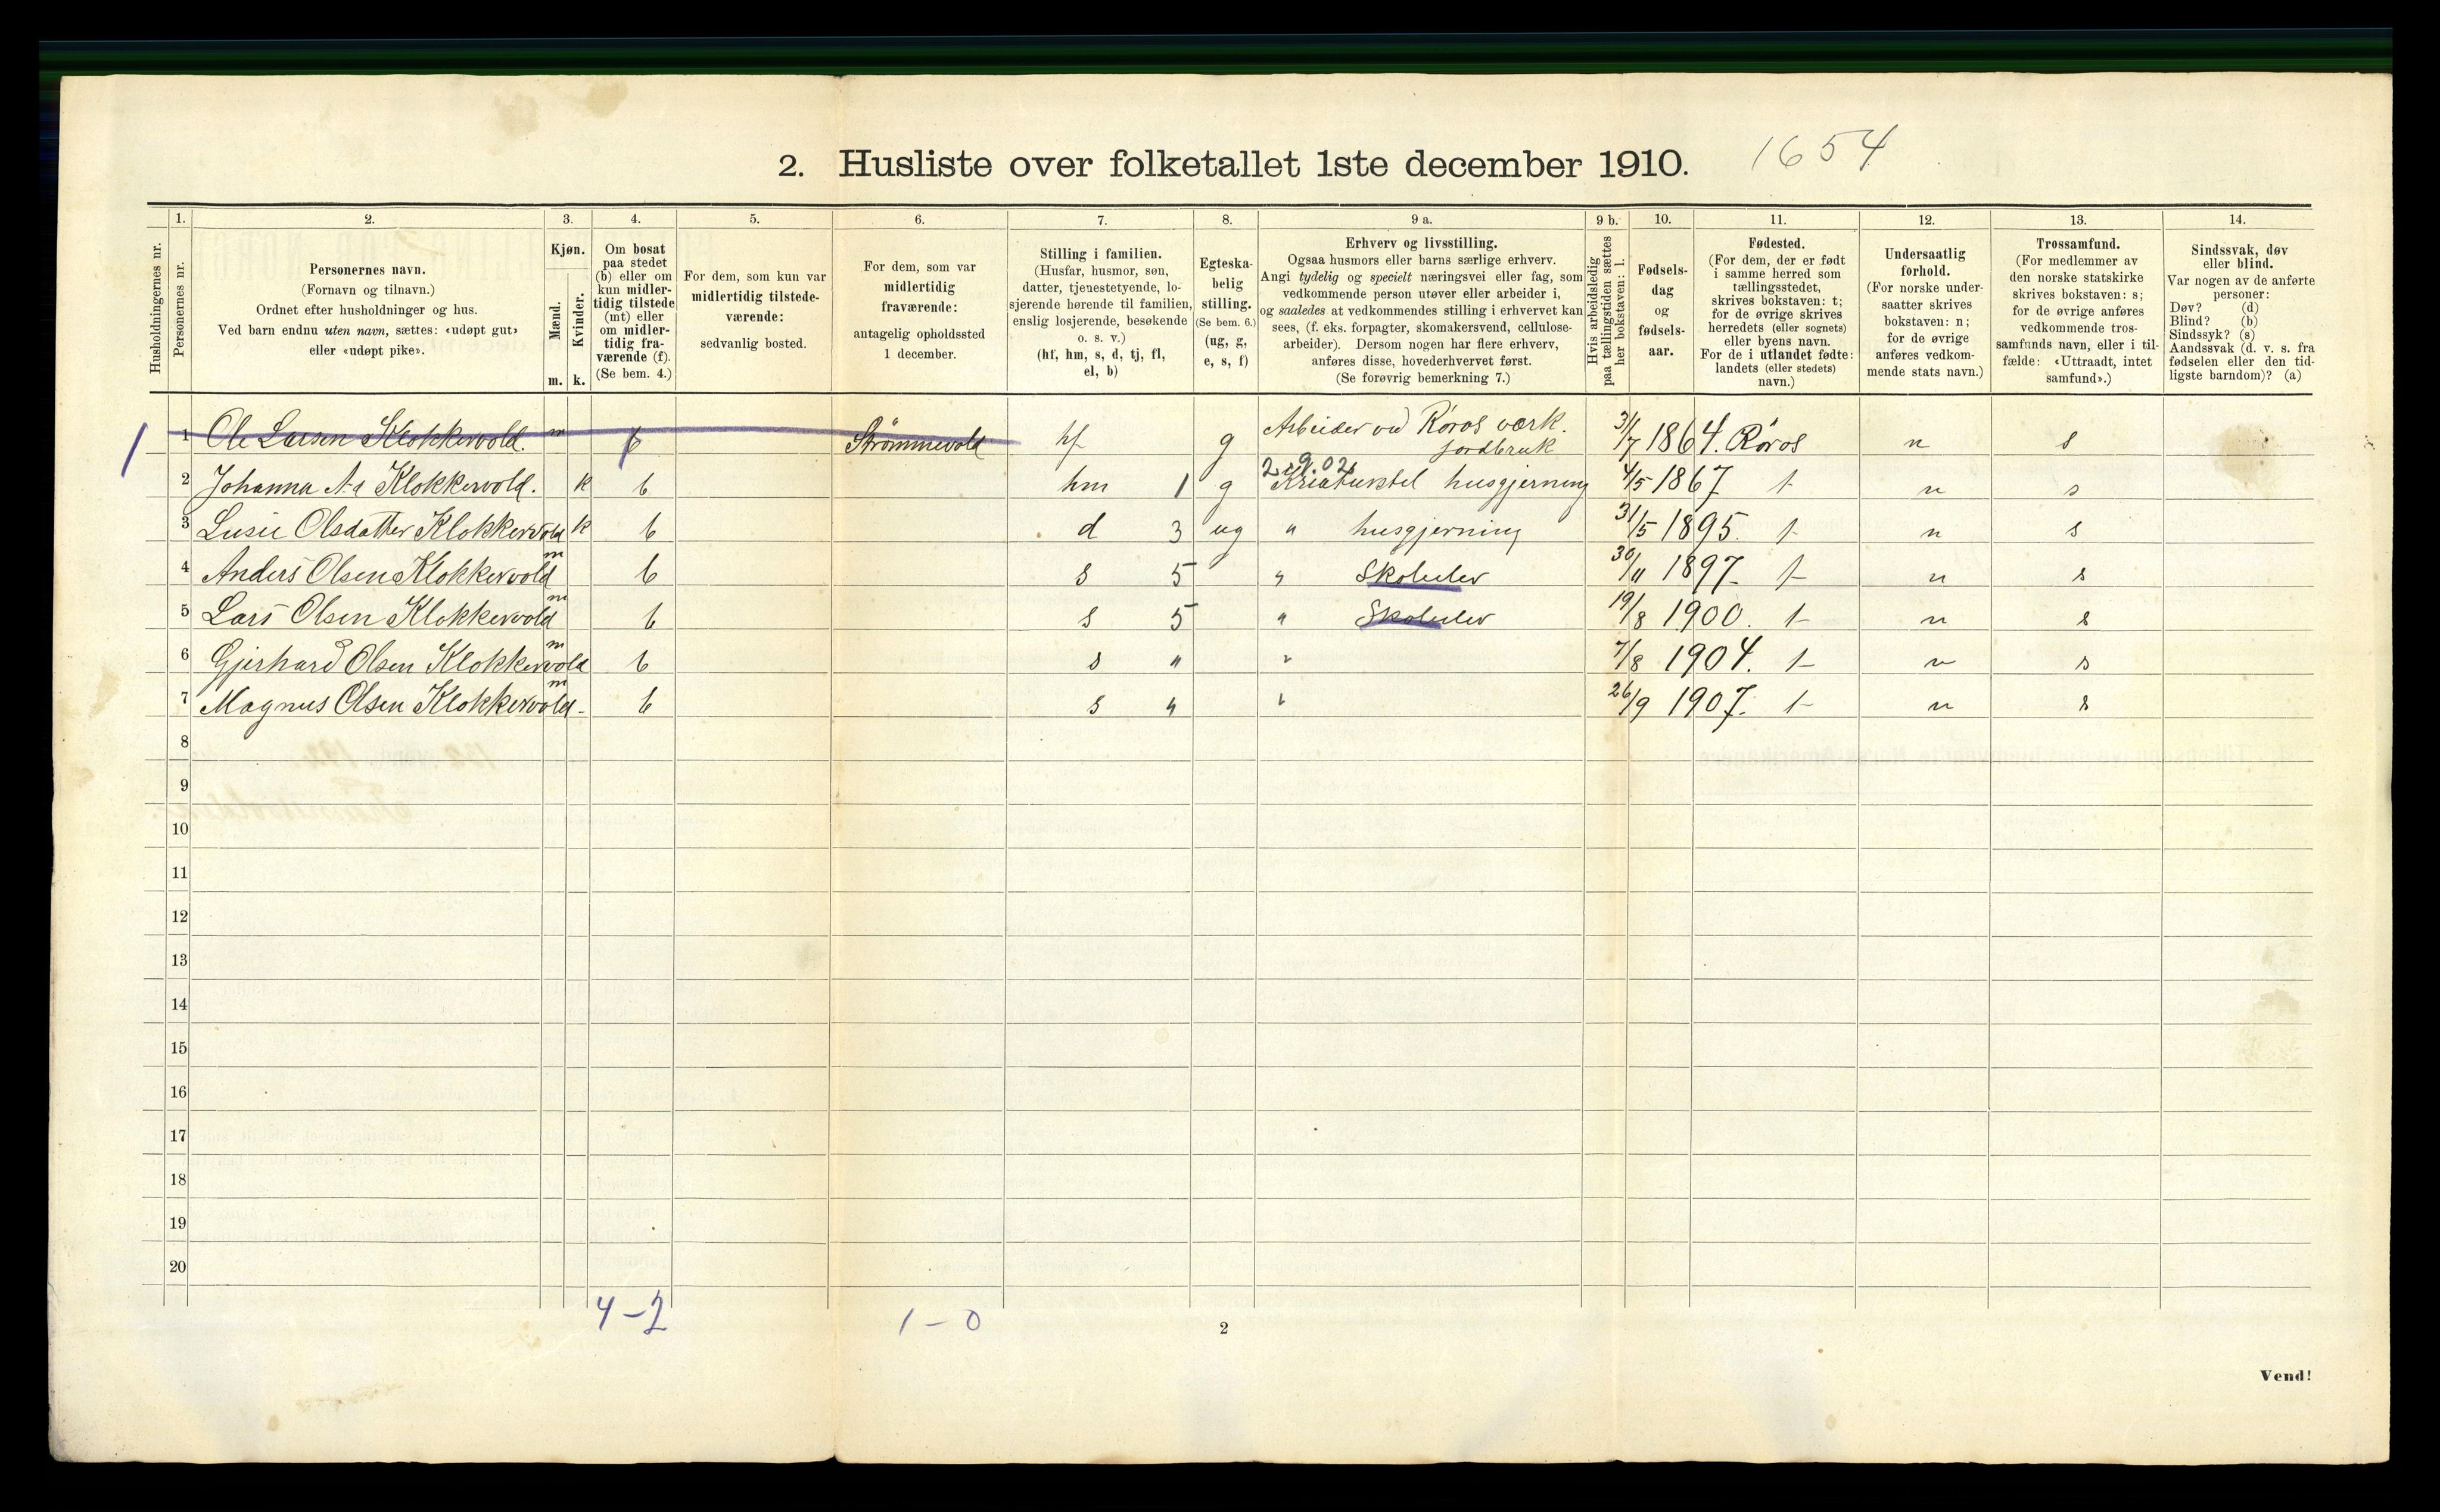 2. Husliste over folketallet 1ste december 1910. 1654
Husholdningernes nr.
1. Personernes nr.
2. Personernes navn.
(Fornavn og tilnavn.)
Ordnet efter husholdninger og hus.
Ved barn endnu uten navn, sættes: «udøpt gut»
eller «udøpt pike».
3. Kjøn.
Mænd. m.
Kvinder. k.
4. Om bosat
paa stedet
(b) eller om
kun midler-
tidig tilstede
(mt) eller
om midler-
tidig fra-
værende (f).
(Se bem. 4.)
5. For dem, som kun var
midlertidig tilstede-
værende:
sedvanlig bosted.
6. For dem, som var
midlertidig
fraværende:
antagelig opholdssted
1 december.
7. Stilling i familien.
(Husfar, husmor, søn,
datter, tjenestetyende, lo-
sjerende hørende til familien,
enslig losjerende, besøkende
o. s. v.)
(hf, hm, s, d, tj, fl,
el, b)
8. Egteska-
belig
stilling.
(Se bem. 6.)
(ug, g,
e, s, f)
9 a. Erhverv og livsstilling.
Ogsaa husmors eller barns særlige erhverv.
Angi tydelig og specielt næringsvei eller fag, som
vedkommende person utøver eller arbeider i,
og saaledes at vedkommendes stilling i erhvervet kan
sees, (f. eks. forpagter, skomakersvend, cellulose-
arbeider). Dersom nogen har flere erhverv,
anføres disse, hovederhvervet først.
(Se forøvrig bemerkning 7.)
9 b. Hvis arbeidsledig
paa tællingstiden sættes
her bokstaven: l.
10. Fødsels-
dag
og
fødsels-
aar.
11. Fødested.
(For dem, der er født
i samme herred som
tællingsstedet,
skrives bokstaven: t;
for de øvrige skrives
herredets (eller sognets)
eller byens navn.
For de i utlandet fødte:
landets (eller stedets)
navn.)
12. Undersaatlig
forhold.
(For norske under-
saatter skrives
bokstaven: n;
for de øvrige
anføres vedkom-
mende stats navn.)
13. Trossamfund.
(For medlemmer av
den norske statskirke
skrives bokstaven: s;
for de øvrige anføres
vedkommende tros-
samfunds navn, eller i til-
fælde: «Uttraadt, intet
samfund».)
14. Sindssvak, døv
eller blind.
Var nogen av de anførte
personer:
Døv? (d)
Blind? (b)
Sindssyk? (s)
Aandssvak (d. v. s. fra
fødselen eller den tid-
ligste barndom)? (a)
1 1 Ole Larsen Klokkervold. m f Strömmevold hf g Arbeider ved Röros værk. jordbruk 31/7 1864. Röros n s
2.9.02
2 Johanna Klokkervold. k b hm 1 g Kreaturstel husgjerning 4/5 1867 t n s
3 Lusie Olsdatter Klokkervold k b d 3 ug " husgjerning 31/5 1895. t n s
4 Anders Olsen Klokkervold m b s 5 " Skoleelev 30/11 1897 t n s
5 Lars Olsen Klokkervold m b s 5 " Skoleelev 19/8 1900. t n s
6 Gjerhard Olsen Klokkervold m b s " " 7/8 1904. t n s
7 Magnus Olsen Klokkervold m b s " " 26/9 1907. t n s
8
9
10
11
12
13
14
15
16
17
18
19
20
4-2 1-0
2
Vend!